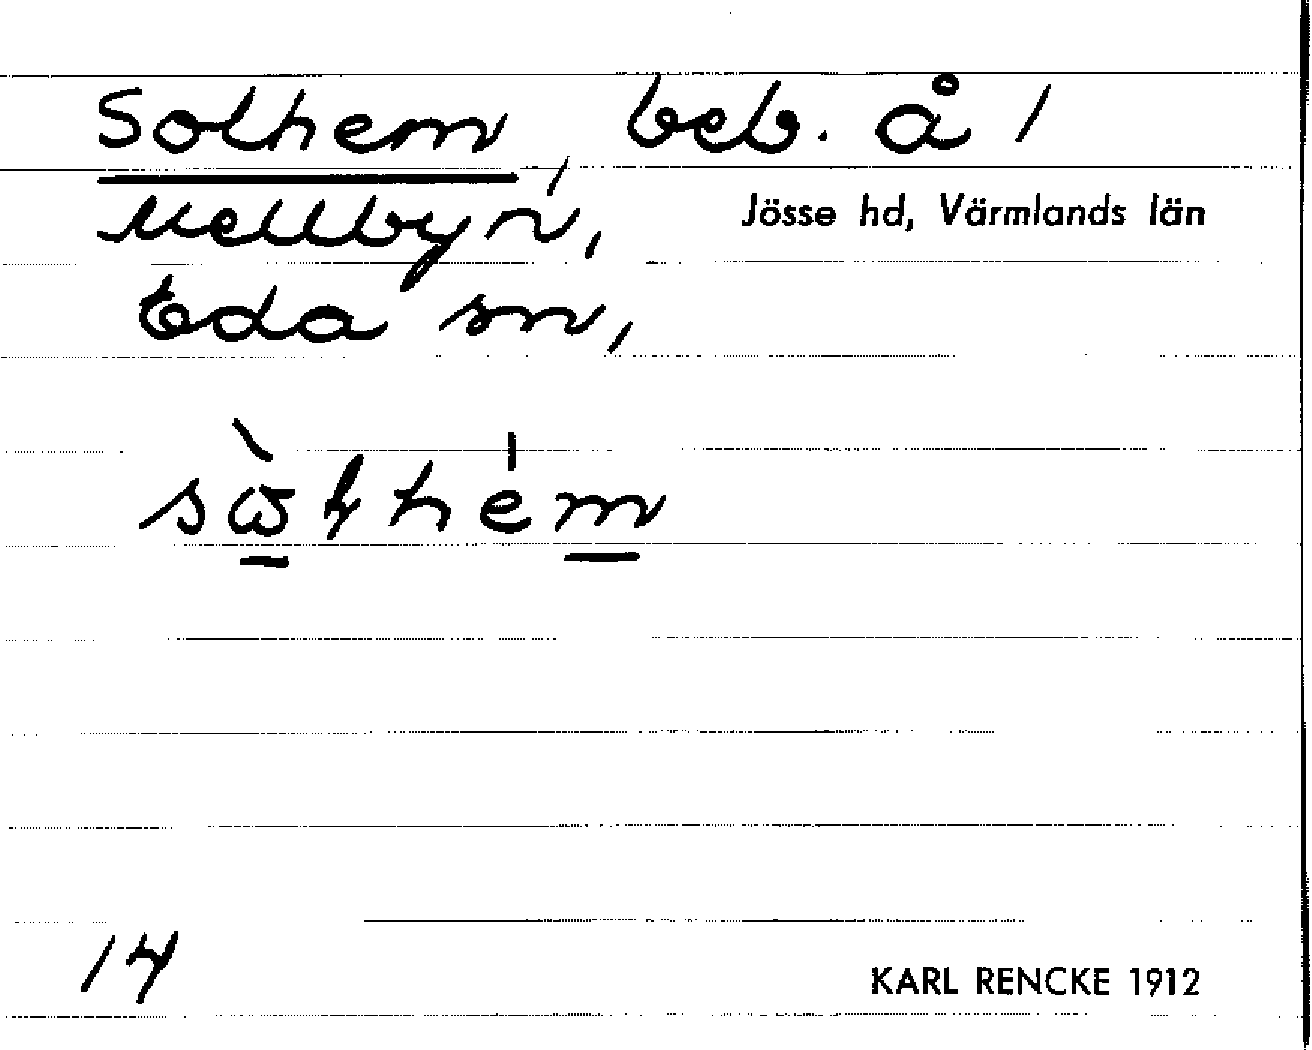 Solhem, beb. å 1
Mellbyn,
Jösse hd, Värmlands län
Eda sn,
14
KARL RENCKE 1912